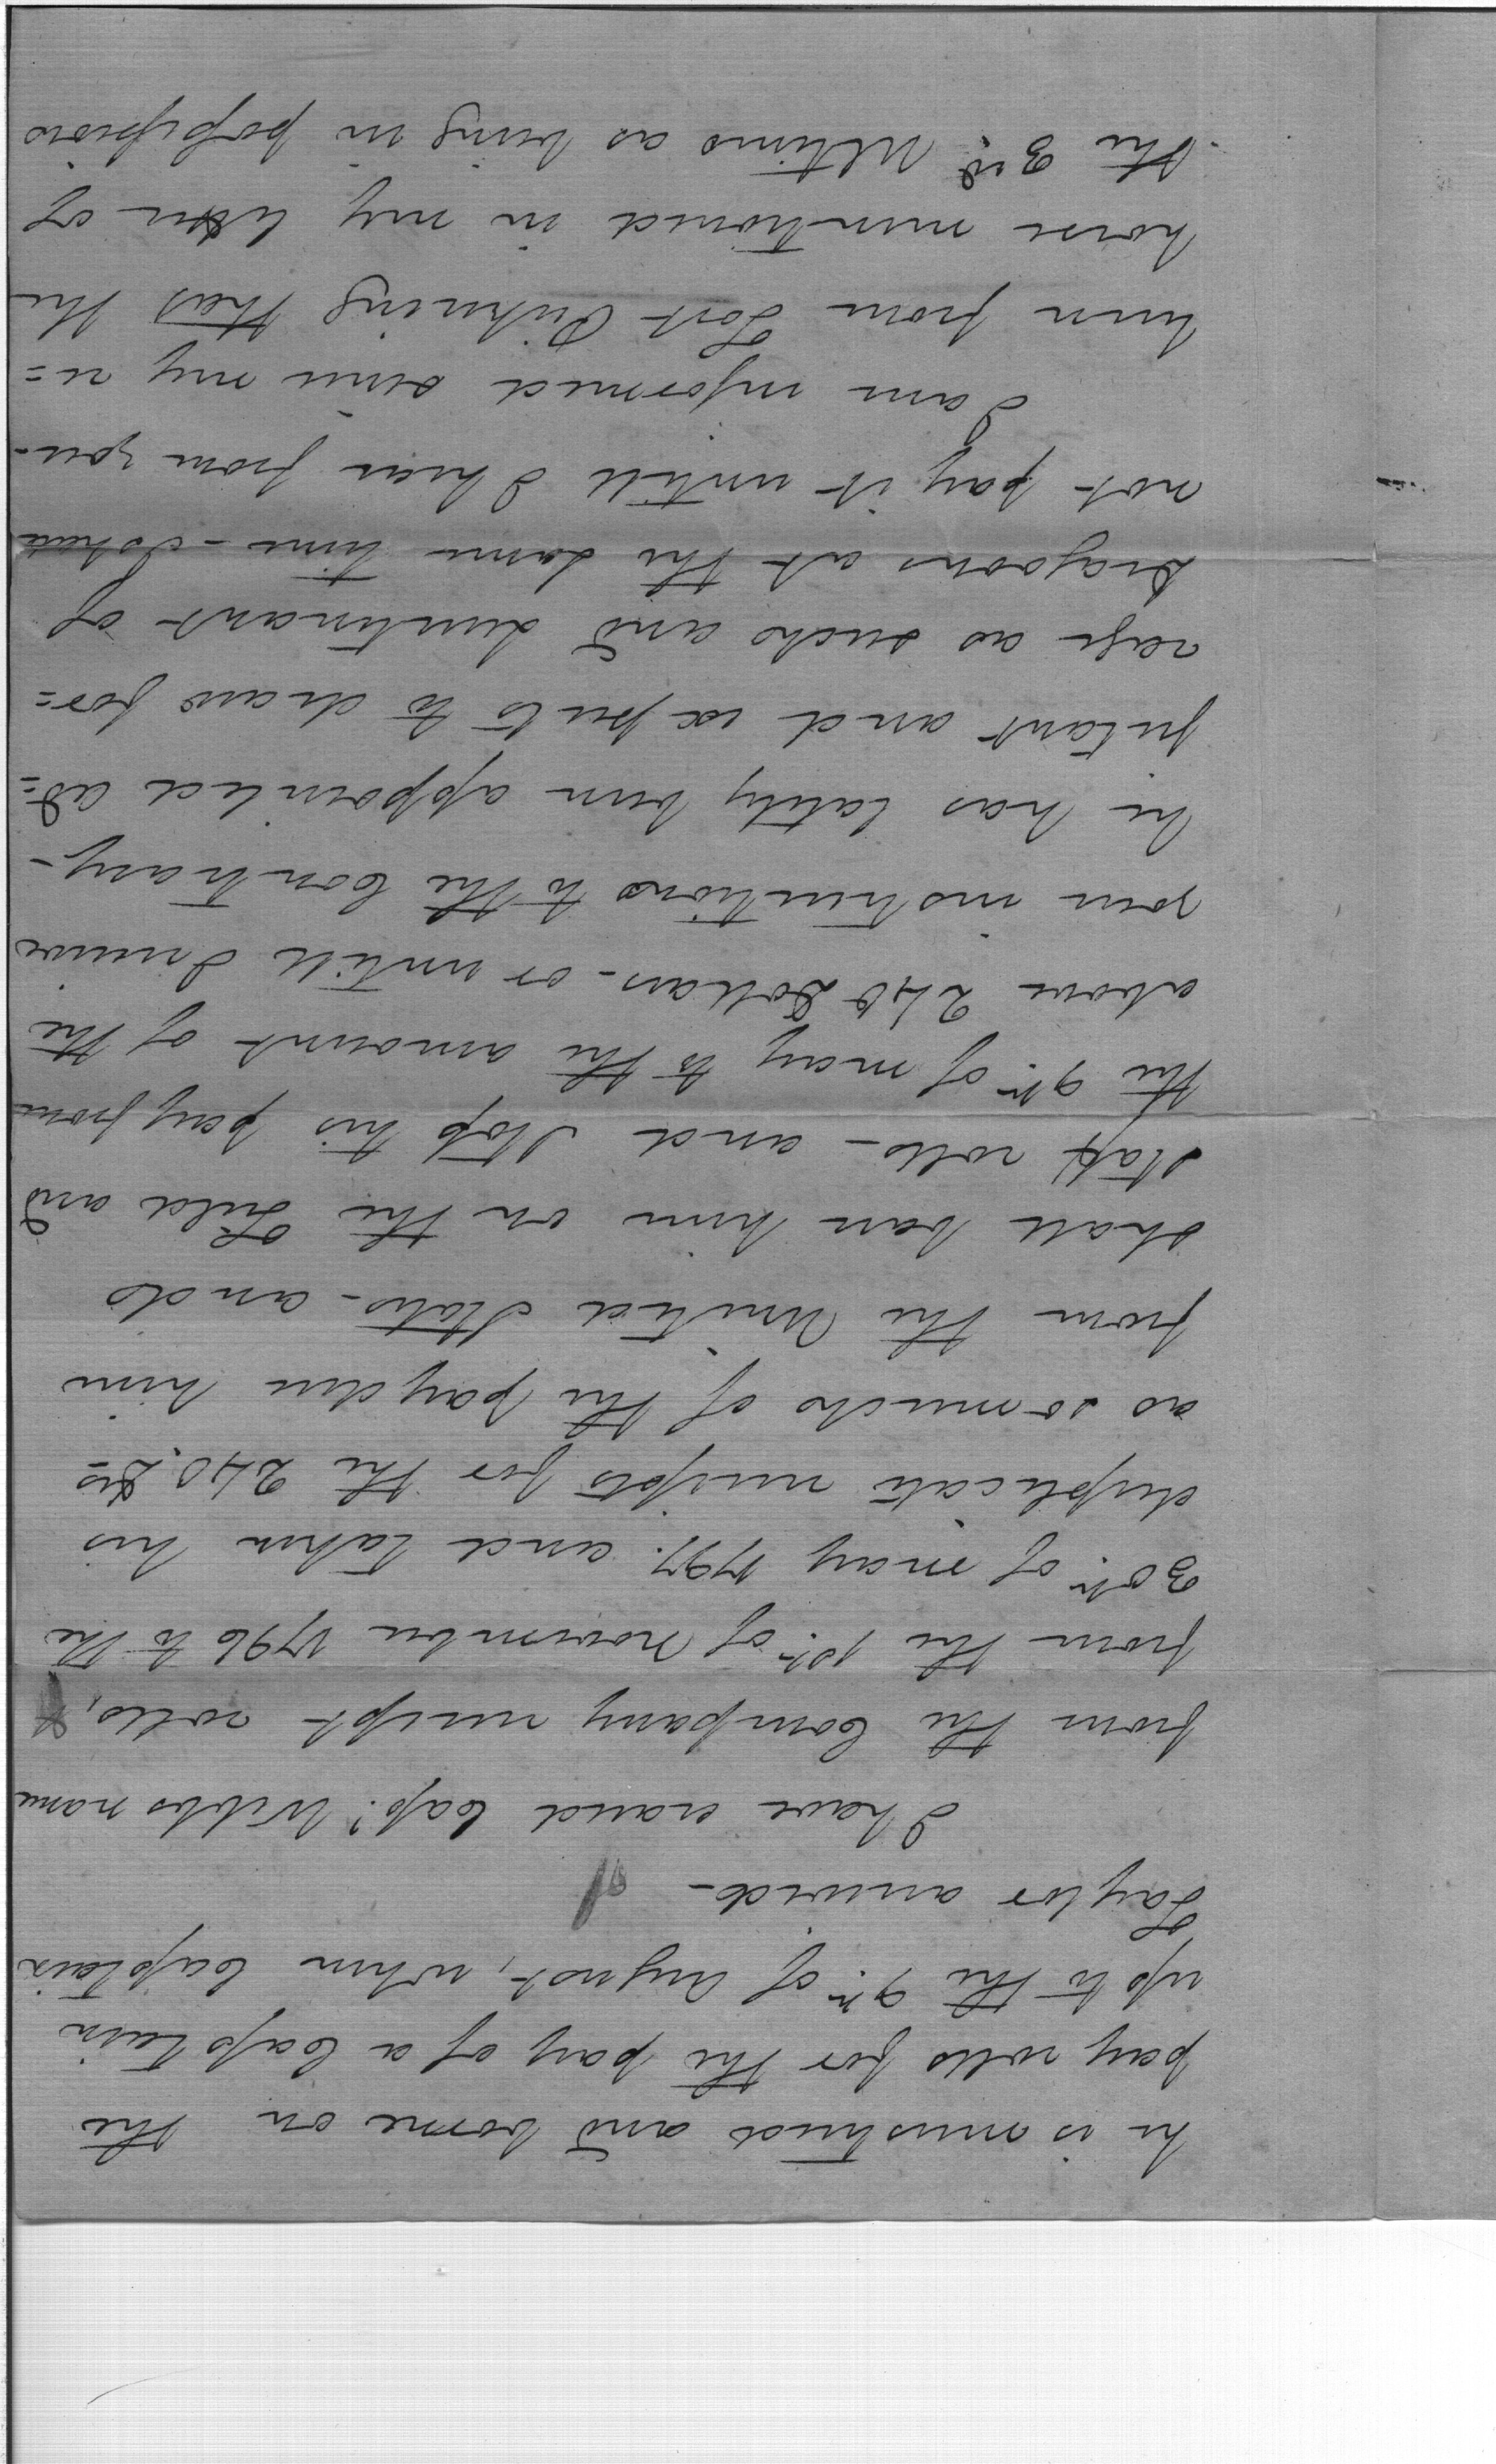 he is mustered and borne on the
pay rolls for the pay of a Captain
up to the 9th. of August, when Captain
Taylor arrived -
I have erased Cap! Webbs name
from the Company receipt rolls,
from the 1st. of November 1796 to the
30th. of may 1797. and taken his
duplicate receipts for the 240. Ds
as somuch of the pay due him
from the United States - and
shall bear him on the Field and
staff rolls - and stop his pay from
the 9th. of may to the amount of the
above 240 Dollars - or untill I receive
your instructions to the Contrary -
he has lately been appointed ad=
jutant and expects to draw for=
rage as such and Lieutenant of
Dragoons at the same time - I shall
not pay it untill I hear from you -
I am informed since my re=
turn from Fort Pickering that the
horse mentioned in my letter of
the 3d. Ultimo as being in possession